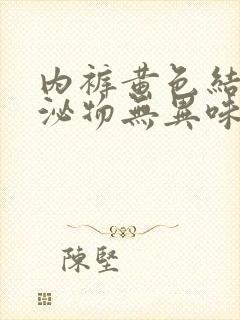 內褲黃色結
泌物無異味
陳堅